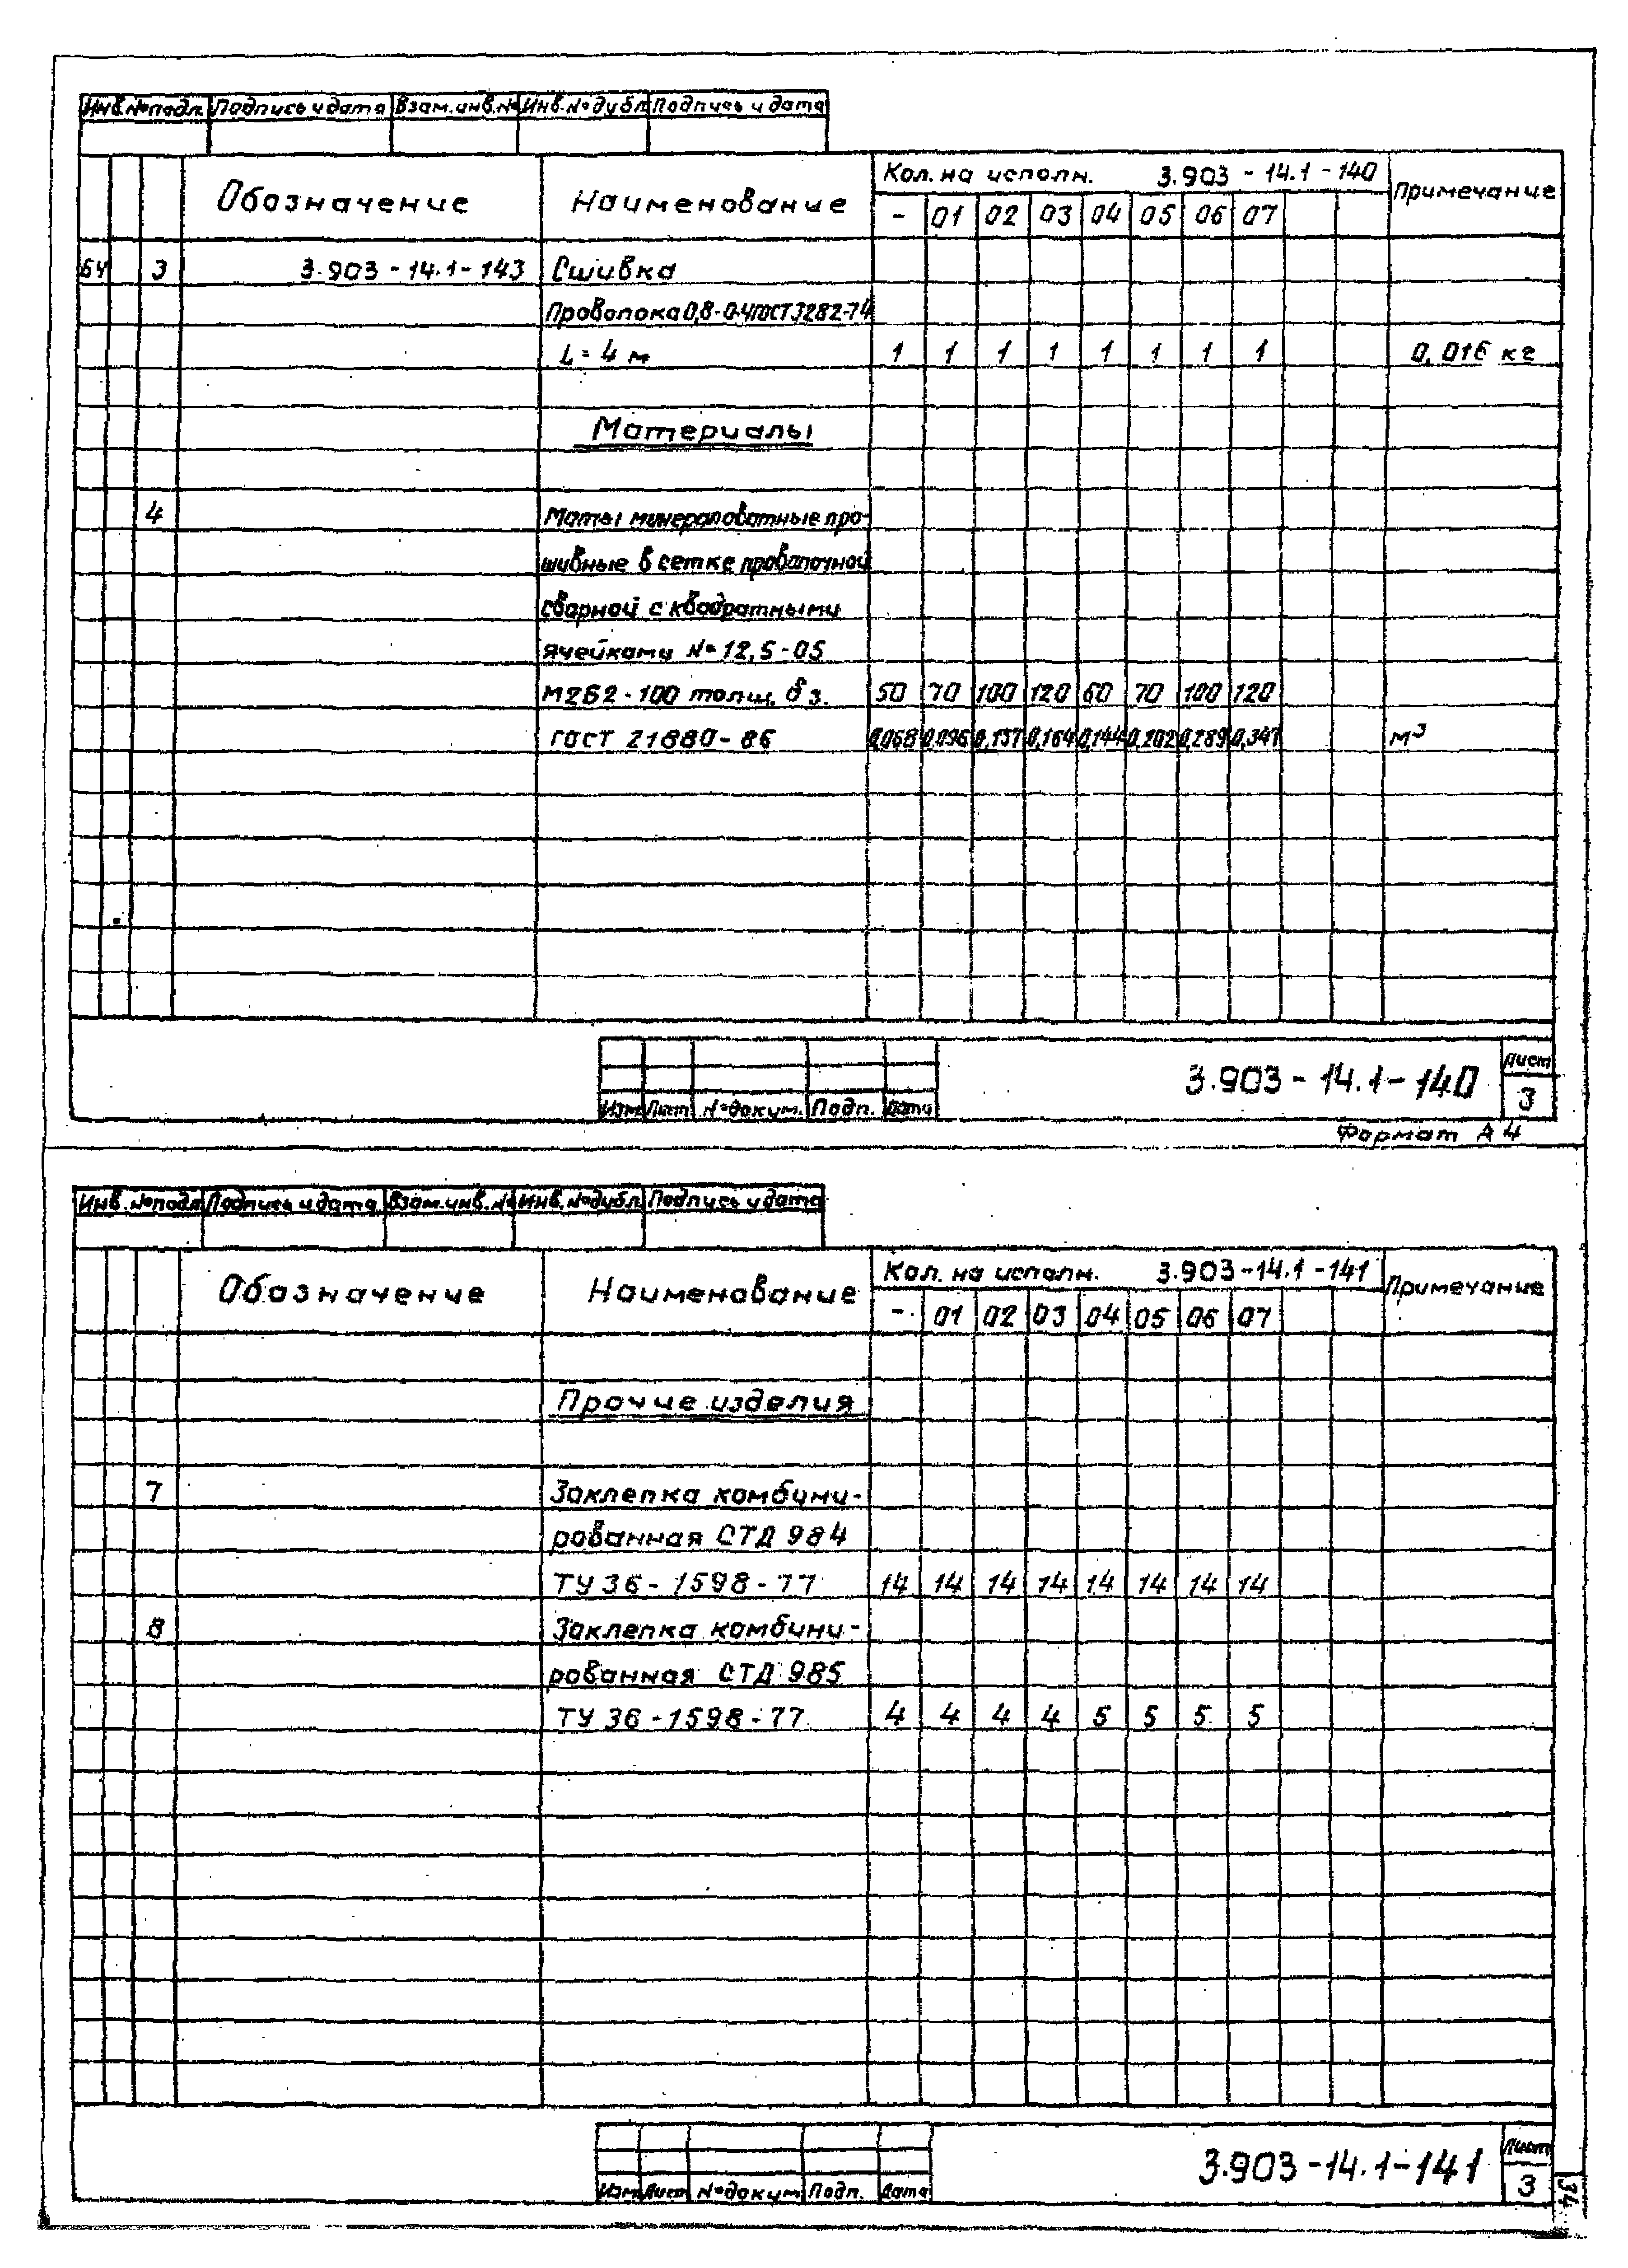 Инв.№подл. Подпись и дата Взам.инв.№ Инв.№дубл. Подпись и дата
Обозначение Наименование Кол. на исполн. 3.903-14.1-140 Примечание
- 01 02 03 04 05 06 07
БЧ 3 3.903-14.1-143 Сшивка
Проволока 0,8-0-Ч ГОСТ 3282-74
L=4 м 1 1 1 1 1 1 1 1 0,016 кг
Материалы
4 Маты минераловатные про-
шивные в сетке проволочной
сварной с квадратными
ячейками №12,5-05
М2Б2-100 толщ. δз. 50 70 100 120 60 70 100 120
ГОСТ 21880-86 0,068 0,096 0,137 0,164 0,144 0,202 0,289 0,347 м³
3.903-14.1-140 Лист
Изм Лист №докум. Подп. Дата 3
Формат А4
Инв.№подл. Подпись и дата Взам.инв.№ Инв.№дубл. Подпись и дата
Обозначение Наименование Кол. на исполн. 3.903-14.1-141 Примечание
- 01 02 03 04 05 06 07
Прочие изделия
7 Заклепка комбини-
рованная СТД 984
ТУ 36-1598-77 14 14 14 14 14 14 14 14
8 Заклепка комбини-
рованная СТД 985
ТУ 36-1598-77 4 4 4 4 5 5 5 5
3.903-14.1-141 Лист
Изм Лист №докум. Подп. Дата 3
134